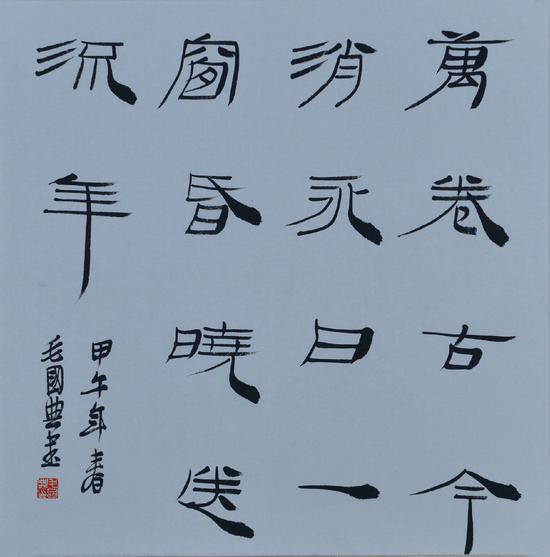 萬卷古今
消永日一
窗昏曉送
流年
甲午年春
毛國典書